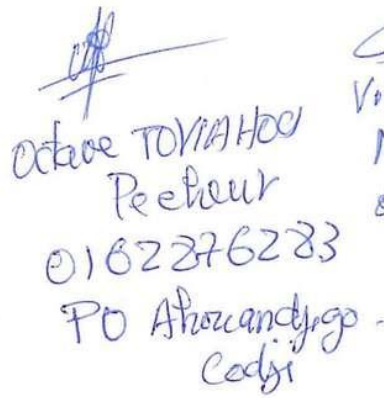 Octave TOVIAHOU
Pecheur
0162276283
PO Ahouandjigo -
Codji